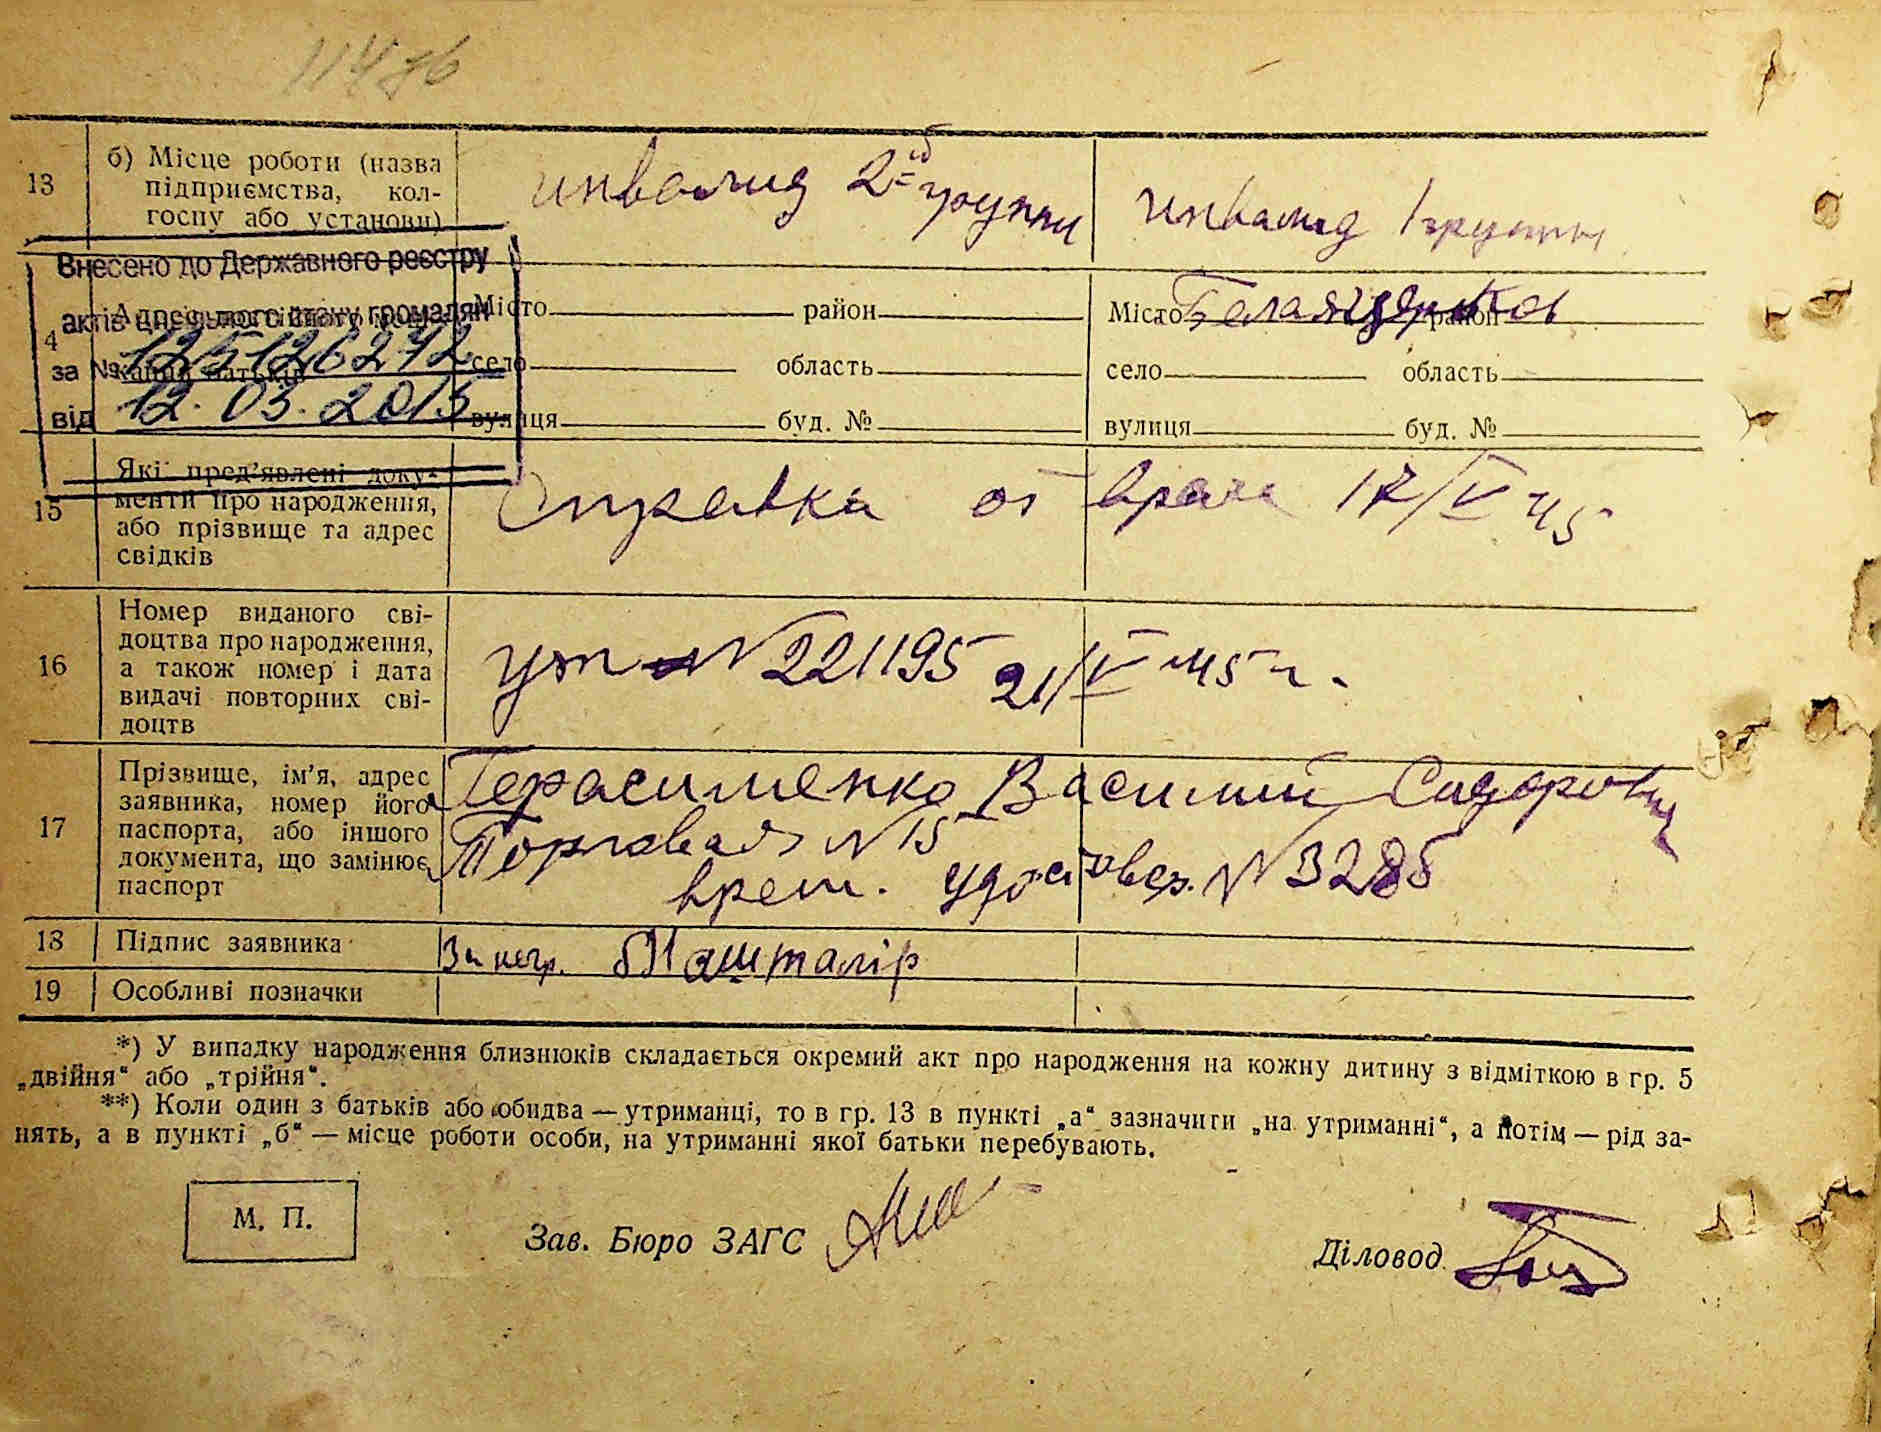 114
13 б) Місце роботи (назва
підприємства, кол-
госпу або установи)
инвалид 2ой группы
инвалид 1 группы
Внесено до Державного реєстру
актів цивільного стану громадян
за №
від 12.03.2015
Місто район
село область
вулиця буд. №
Місто район
село область
вулиця буд. №
15 Які пред’явлені доку-
менти про народження,
або прізвище та адрес
свідків
Справка от врача 17/V 45
16 Номер виданого сві-
доцтва про народження,
а також номер і дата
видачі повторних сві-
доцтв
№ 221195 21/V 45 г.
17 Прізвище, ім’я, адрес
заявника, номер його
паспорта, або іншого
документа, що замінює
паспорт
Герасименко Василий Сидорович
Торговая № 15
врем. удостовер. № 3285
18 Підпис заявника
За негр. Машталір
19 Особливі позначки
*) У випадку народження близнюків складається окремий акт про народження на кожну дитину з відміткою в гр. 5
„двійня“ або „трійня“.
**) Коли один з батьків або обидва — утриманці, то в гр. 13 в пункті „а“ зазначити „на утриманні“, а потім — рід за-
нять, а в пункті „б“ — місце роботи особи, на утриманні якої батьки перебувають.
М. П.
Зав. Бюро ЗАГС
Діловод